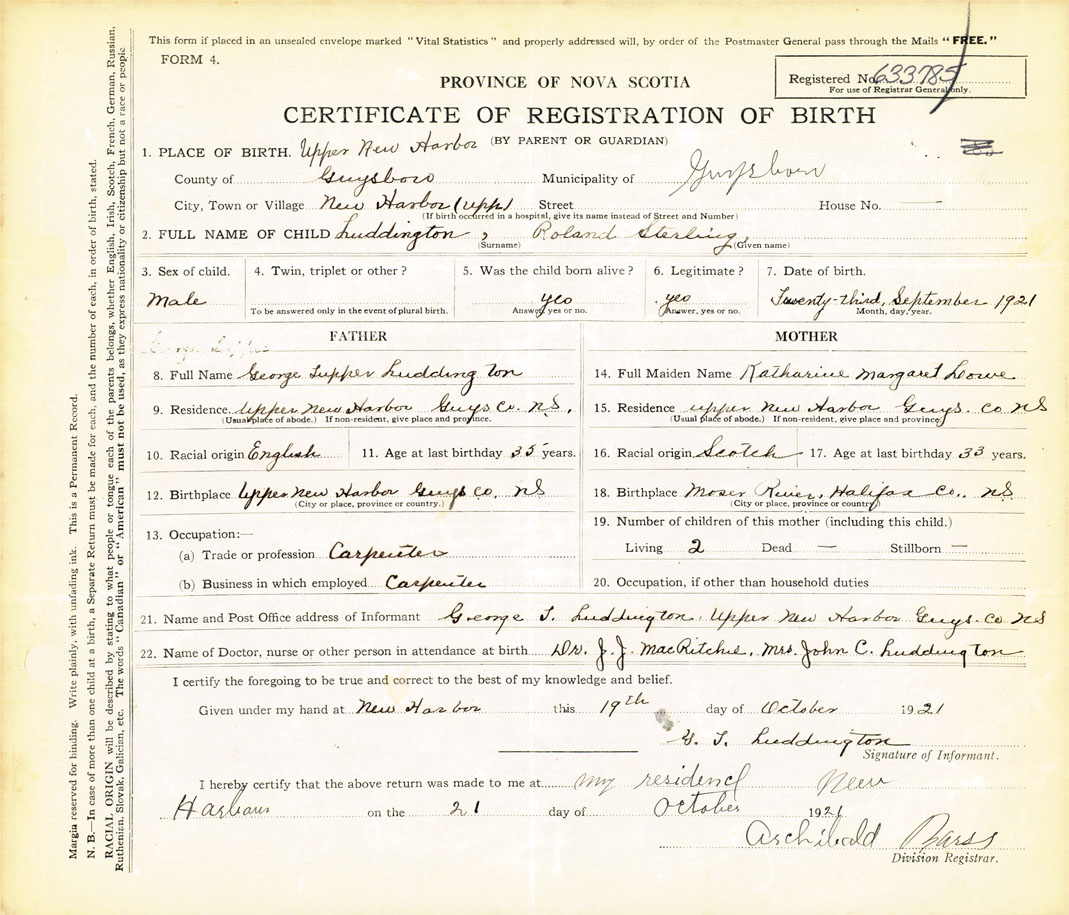 This form if placed in an unsealed envelope marked "Vital Statistics" and properly addressed will, by order of the Postmaster General pass through the Mails "FREE."
FORM 4.
Registered No. 633785
For use of Registrar General only.
PROVINCE OF NOVA SCOTIA
CERTIFICATE OF REGISTRATION OF BIRTH
(BY PARENT OR GUARDIAN)
1. PLACE OF BIRTH. Upper New Harbor
County of Guysboro Municipality of Guysboro
City, Town or Village New Harbor (Upp) Street House No. —
(If birth occurred in a hospital, give its name instead of Street and Number)
2. FULL NAME OF CHILD Luddington, Roland Sterling,
(Surname) (Given name)
3. Sex of child. 4. Twin, triplet or other? 5. Was the child born alive? 6. Legitimate? 7. Date of birth.
Male yes yes Twenty-third, September 1921
To be answered only in the event of plural birth. Answer, yes or no. Answer, yes or no. Month, day, year.
FATHER MOTHER
8. Full Name George Tupper Luddington 14. Full Maiden Name Katharine Margaret Lowe
9. Residence Upper New Harbor Guys Co. N.S. 15. Residence upper New Harbor Guys. Co NS
(Usual place of abode.) If non-resident, give place and province. (Usual place of abode.) If non-resident, give place and province.
10. Racial origin English 11. Age at last birthday 35 years. 16. Racial origin Scotch 17. Age at last birthday 33 years.
12. Birthplace Upper New Harbor Guys Co. NS 18. Birthplace Moser River, Halifax Co., NS
(City or place, province or country.) (City or place, province or country)
13. Occupation:— 19. Number of children of this mother (including this child.)
(a) Trade or profession Carpenter Living 2 Dead — Stillborn —
(b) Business in which employed Carpenter 20. Occupation, if other than household duties
21. Name and Post Office address of Informant George T. Luddington, Upper New Harbor Guys. Co NS
22. Name of Doctor, nurse or other person in attendance at birth Dr. J. J. MacRitchie, Mrs. John C. Luddington
I certify the foregoing to be true and correct to the best of my knowledge and belief.
Given under my hand at New Harbor this 19th day of October 1921
G. T. Luddington
Signature of Informant.
I hereby certify that the above return was made to me at my residence New
Harbour on the 21 day of October 1921
Archibald Barss
Division Registrar.
Margin reserved for binding. Write plainly, with unfading ink. This is a Permanent Record.
N. B.—In case of more than one child at a birth, a Separate Return must be made for each, and the number of each, in order of birth, stated.
RACIAL ORIGIN will be described by stating to what people or tongue each of the parents belongs, whether English, Irish, Scotch, French, German, Russian,
Ruthenian, Slovak, Galician, etc. The words "Canadian" or "American" must not be used, as they express nationality or citizenship but not a race or people